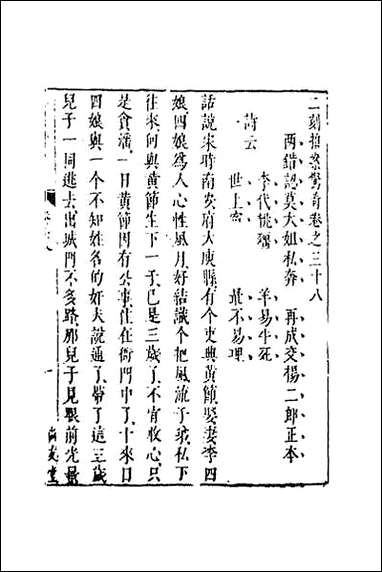 二刻拍案驚奇卷之三十八
兩錯認莫大姐私奔　再成交楊二郎正本
詩云
李代桃僵　羊易牛死
世上　最不易理
話說宋時南安府大庾縣有个吏典黃節娶妻李四
娘四娘爲人心性風月好結識个把風流子弟私下
往來向與黃節生下一子已是三歲了不肯收心只
是貪淫一日黃節因有公事住在衙門中了十來日
四娘與一个不知姓名的奸夫說通了帶了這三歲
兒子一同逃去出城門不多路那兒子見眼前光景
尚友堂